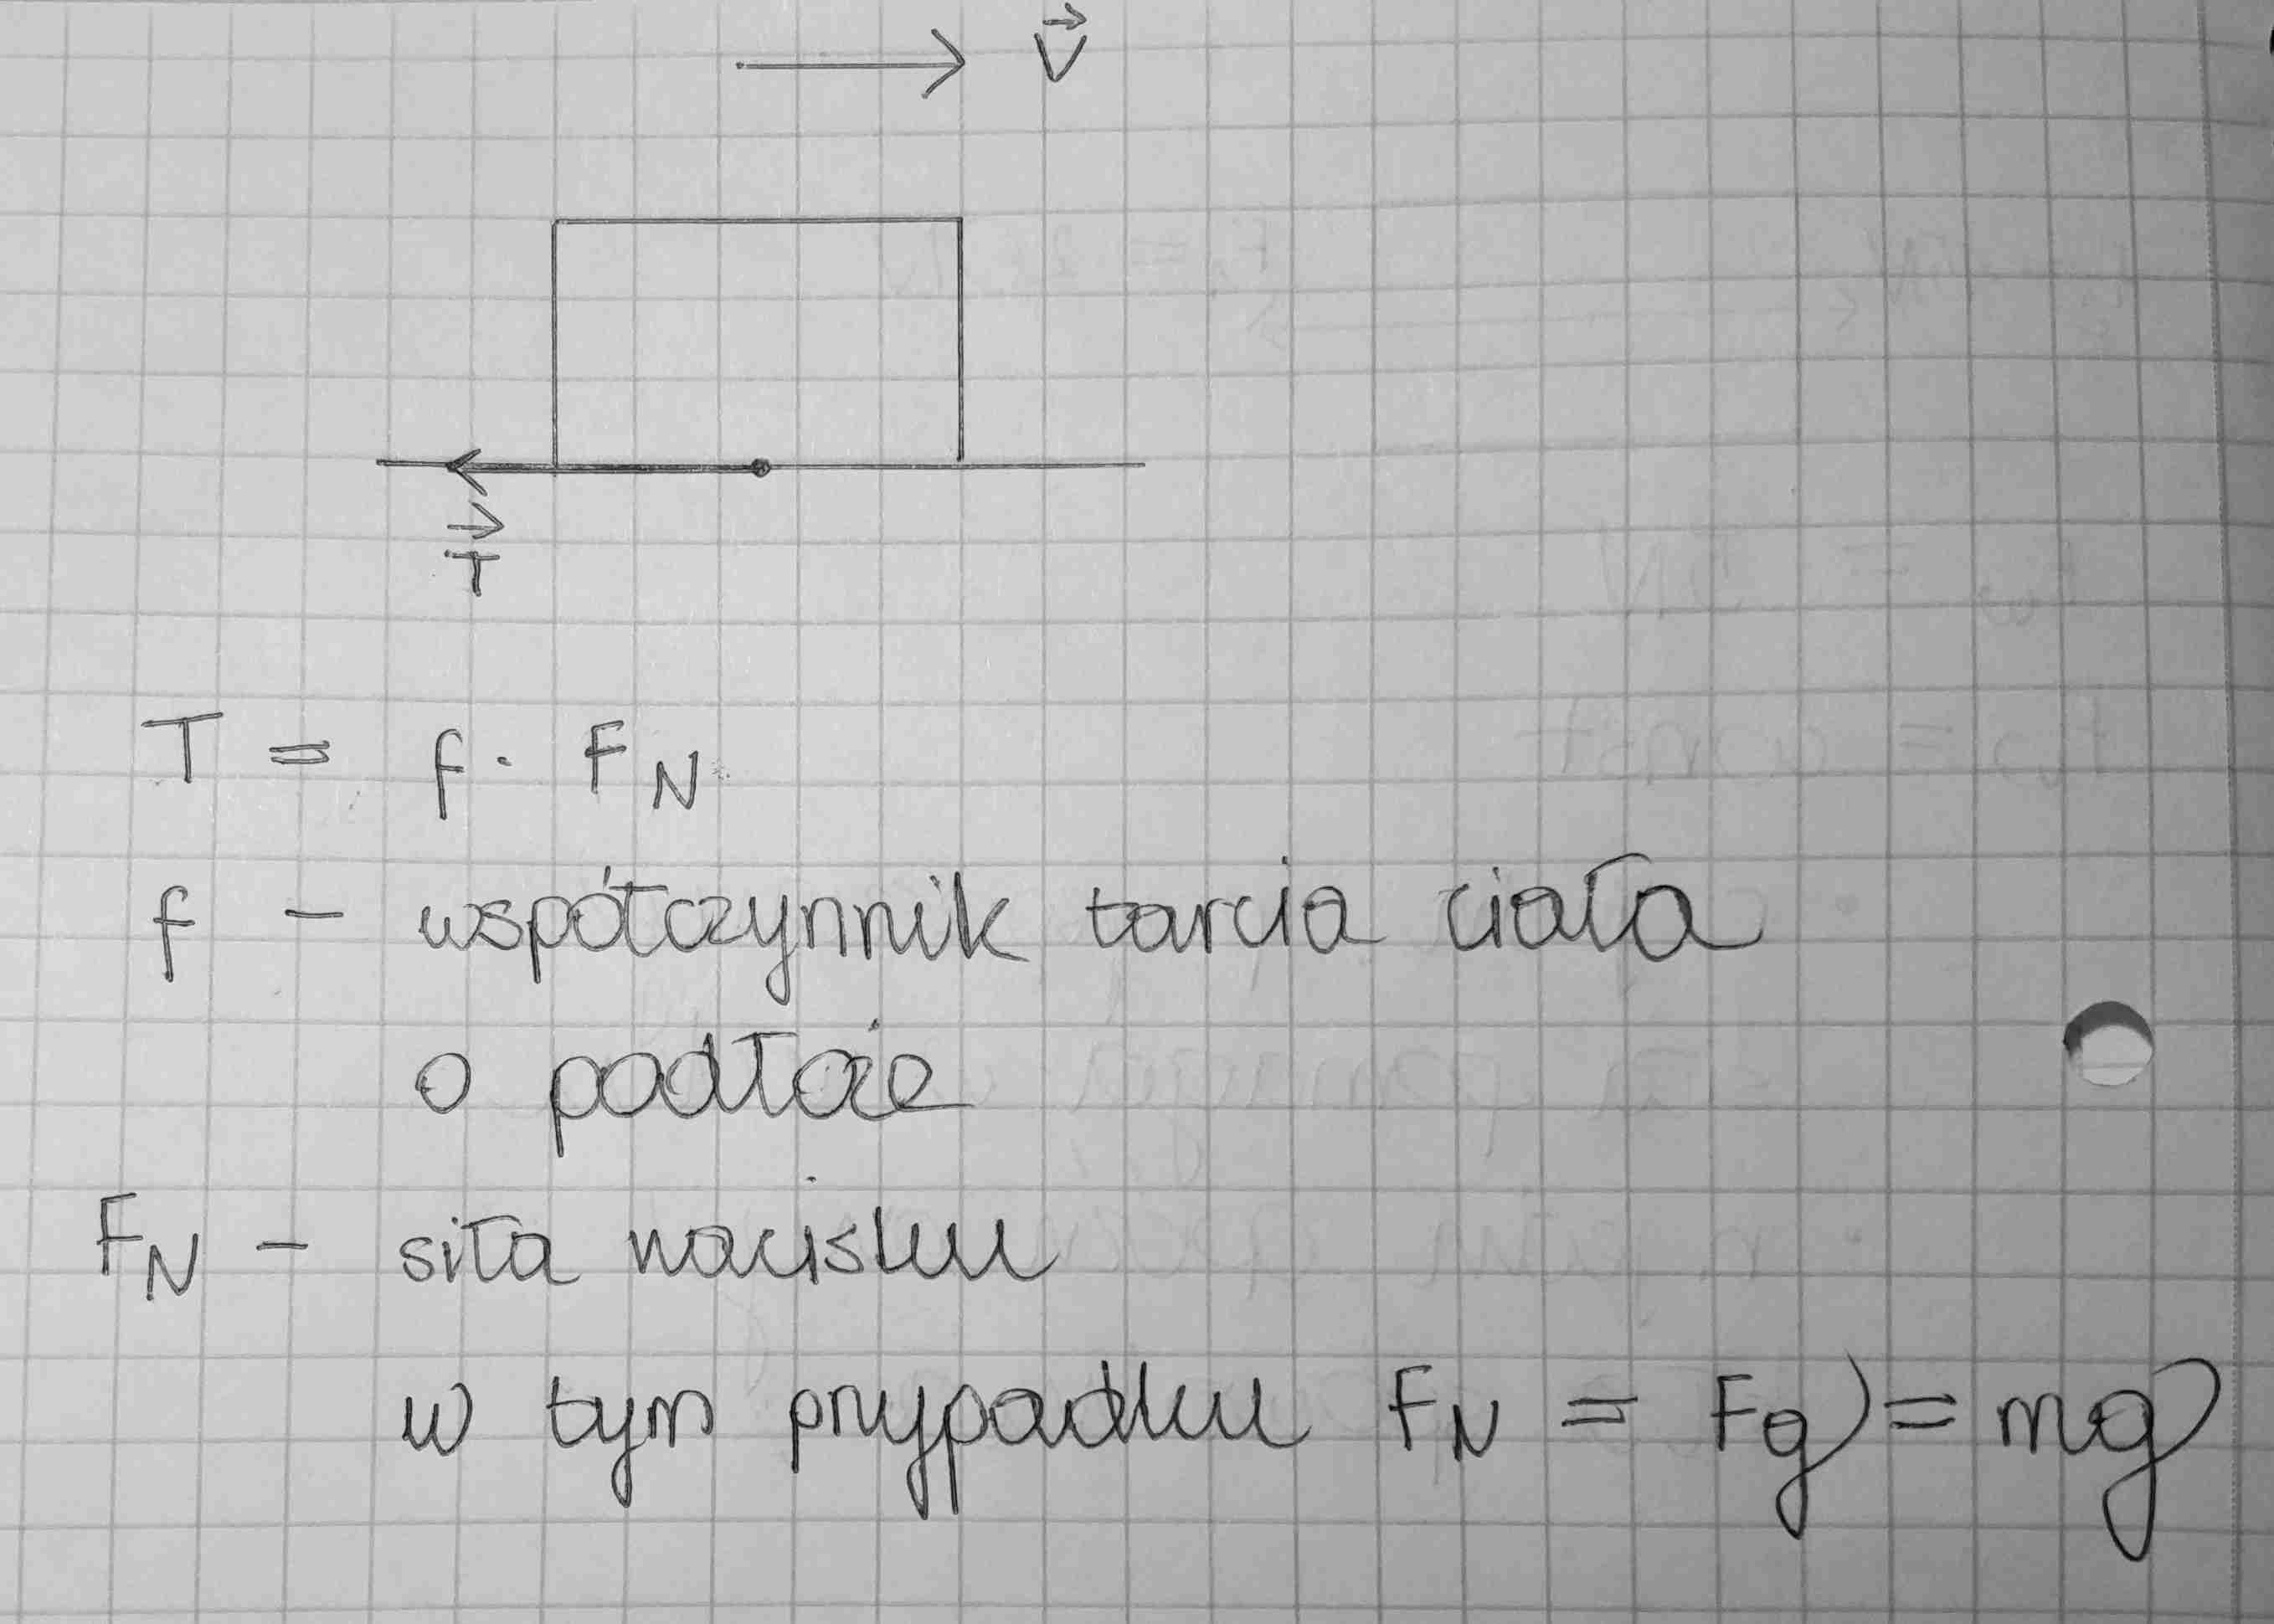 → V⃗
T⃗
T = f · F_N
f – współczynnik tarcia ciała
o podłoże
F_N – siła nacisku
w tym przypadku F_N = Fg = mg